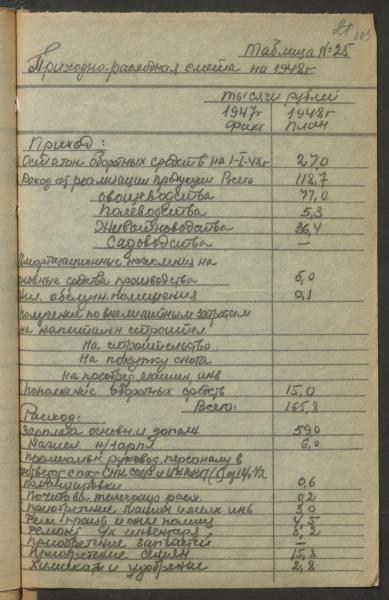 21
103
Таблица №25
Приходно-расходная смета на 1948г
тысячи рублей
1947г 1948г
факт План
Приход:
Остаток оборотных средств на 1-I-48г 27,0
Доход от реализации продукции Всего 118,7
овощеводства 77,0
Полеводства 5,3
Животноводства 36,4
Садоводства —
Амортизационные начисления на
основные средства производства 5,0
помещения 0,1
Получение по внелимитным затратам
на капитальн. строител.
на строительство
на покупку скота
на приобрет. машин, инв
Пополнение оборотных средств 15,0
Всего: 165,8
Расход:
Зарплата основн. и дополн 59,0
Начисл. н/зарпл 6,0
Премиальн. руковод. персоналу в
Командировки 0,6
Почтово телеграф расх. 0,2
Приобретение машин и мелк инв 3,0
4,5
Ремонт с/х инвентаря 5,2
Приобретение запчастей —
Приобретение семян 15,8
Химикат и удобрение 2,8